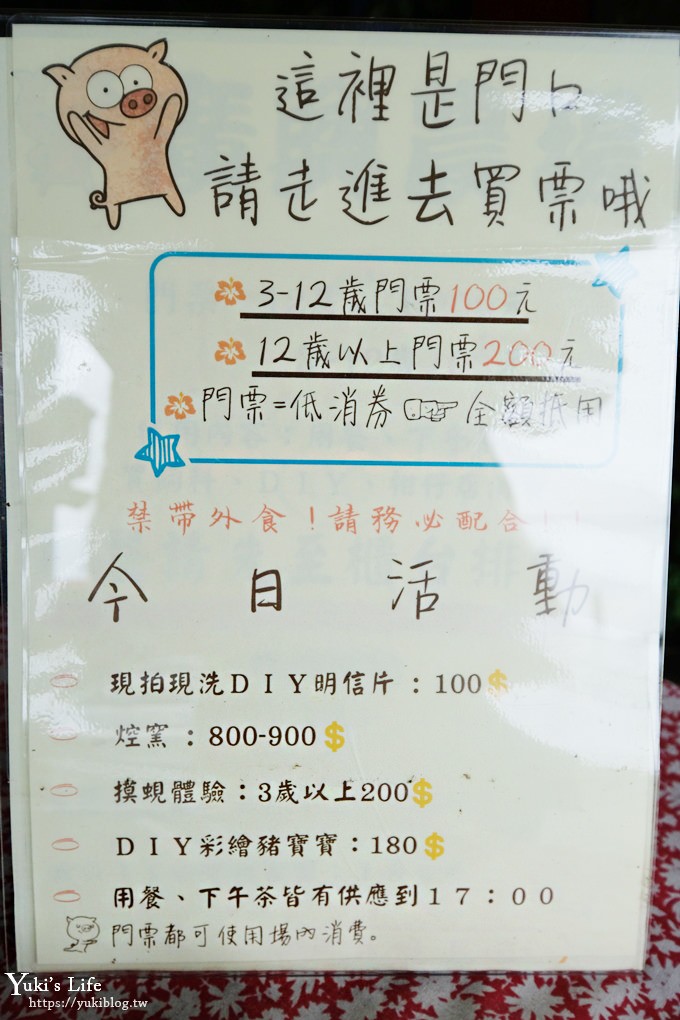 這裡是門口
請走進去買票哦
3-12歲門票100元
12歲以上門票200元
門票=低消券☞全額抵用
禁帶外食!請務必配合!!
今日活動
現拍現洗DIY明信片:100$
焢窯:800-900$
摸蜆體驗:3歲以上200$
DIY彩繪豬寶寶:180$
用餐、下午茶皆有供應到17:00
門票都可使用場內消費。
Yuki's Life
https://yukiblog.tw